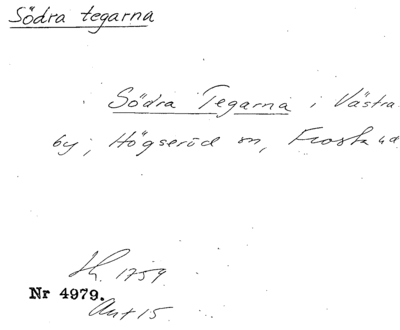 Södra tegarna
Södra Tegarna i Västra
by, Högseröd sn, Frosta hd
Lh. 1759
Nr 4979.
Akt 15.